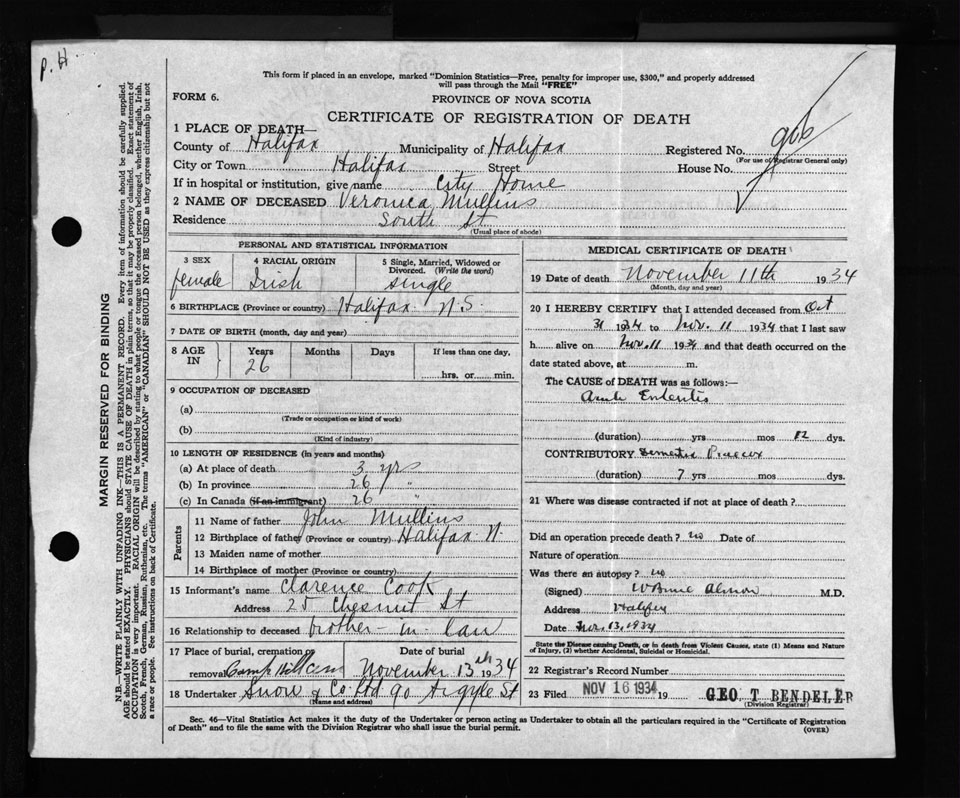 P. H.
This form if placed in an envelope, marked "Dominion Statistics—Free, penalty for improper use, $300," and properly addressed
will pass through the Mail "FREE"
FORM 6.
PROVINCE OF NOVA SCOTIA
CERTIFICATE OF REGISTRATION OF DEATH
1 PLACE OF DEATH—
County of Halifax Municipality of Halifax Registered No.
(For use of Registrar General only)
City or Town Halifax Street House No.
If in hospital or institution, give name City Home
2 NAME OF DECEASED Veronica Mullins
Residence South St
(Usual place of abode)
PERSONAL AND STATISTICAL INFORMATION
3 SEX 4 RACIAL ORIGIN 5 Single, Married, Widowed or Divorced. (Write the word)
female Irish single
6 BIRTHPLACE (Province or country) Halifax N.S.
7 DATE OF BIRTH (month, day and year)
8 AGE IN Years Months Days If less than one day,
26 hrs. or min.
9 OCCUPATION OF DECEASED
(a)
(Trade or occupation or kind of work)
(b)
(Kind of industry)
10 LENGTH OF RESIDENCE (in years and months)
(a) At place of death 3 yrs
(b) In province 26 "
(c) In Canada (if an immigrant) 26 "
Parents
11 Name of father John Mullins
12 Birthplace of father (Province or country) Halifax N.
13 Maiden name of mother
14 Birthplace of mother (Province or country)
15 Informant's name Clarence Cook
Address 25 Chesnut St
16 Relationship to deceased brother in law
17 Place of burial, cremation or removal Camp Hill Cem
Date of burial November 13th 1934
18 Undertaker Snow & Co Ltd 90 Argyle St
(Name and address)
MEDICAL CERTIFICATE OF DEATH
19 Date of death November 11th 1934
(Month, day and year)
20 I HEREBY CERTIFY that I attended deceased from Oct
31 1934 to Nov. 11 1934 that I last saw
h alive on Nov. 11 1934 and that death occurred on the
date stated above, at m.
The CAUSE of DEATH was as follows:—
Acute Enteritis
(duration) yrs mos 12 dys.
CONTRIBUTORY Dementia Praecox
(duration) 7 yrs mos dys.
21 Where was disease contracted if not at place of death?
Did an operation precede death? no Date of
Nature of operation
Was there an autopsy? no
(Signed) W Bruce Almon M.D.
Address Halifax
Date Nov. 13, 1934
State the Disease causing Death, or in death from Violent Causes, state (1) Means and Nature
of Injury, (2) whether Accidental, Suicidal or Homicidal.
22 Registrar's Record Number
23 Filed NOV 16 1934 19 GEO. T. BENDELER
(Division Registrar)
Sec. 46—Vital Statistics Act makes it the duty of the Undertaker or person acting as Undertaker to obtain all the particulars required in the "Certificate of Registration
of Death" and to file the same with the Division Registrar who shall issue the burial permit.
(OVER)
MARGIN RESERVED FOR BINDING
N.B.—WRITE PLAINLY WITH UNFADING INK—THIS IS A PERMANENT RECORD. Every item of information should be carefully supplied.
AGE should be stated EXACTLY. PHYSICIANS should STATE CAUSE OF DEATH in plain terms, so that it may be properly classified. Exact statement of
OCCUPATION is very important. RACIAL ORIGIN will be described by stating to what people or tongue the deceased person belonged, whether English, Irish,
Scotch, French, German, Russian, Ruthenian, etc. The terms "AMERICAN" or "CANADIAN" SHOULD NOT BE USED as they express citizenship but not
a race or people. See instructions on back of Certificate.